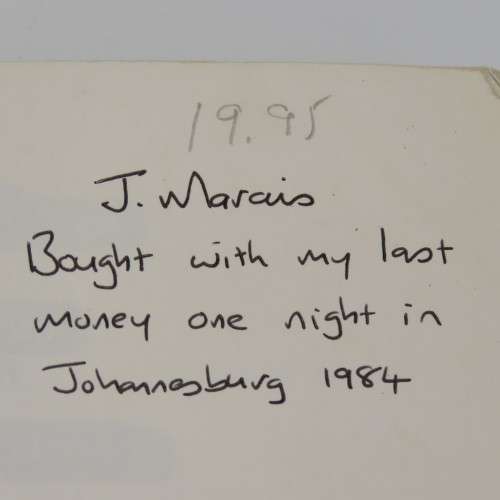 19.95
J. Marais
Bought with my last
money one night in
Johannesburg 1984